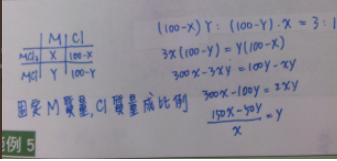 M | Cl
MCl₃ | X | 100-X
MCl | Y | 100-Y
固定 M 質量, Cl 質量成比例
(100-X) Y : (100-Y) · X = 3 : 1
3X(100-Y) = Y(100-X)
300X - 3XY = 100Y - XY
300X - 100Y = 2XY
150X - 50Y / X = Y
範例 5